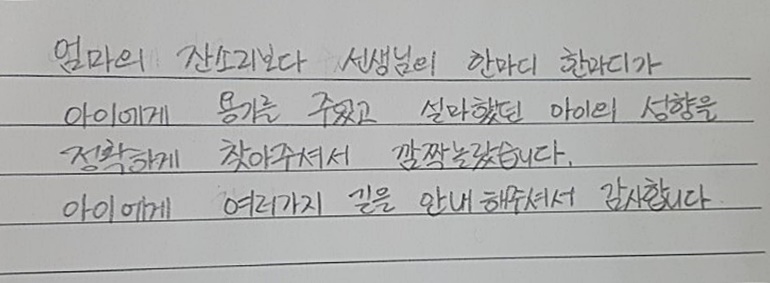 엄마의 잔소리보다 선생님의 한마디 한마디가
아이에게 용기를 주었고 설마했던 아이의 성향을
정확하게 찾아주셔서 깜짝놀랐습니다.
아이에게 여러가지 길을 안내해주셔서 감사합니다